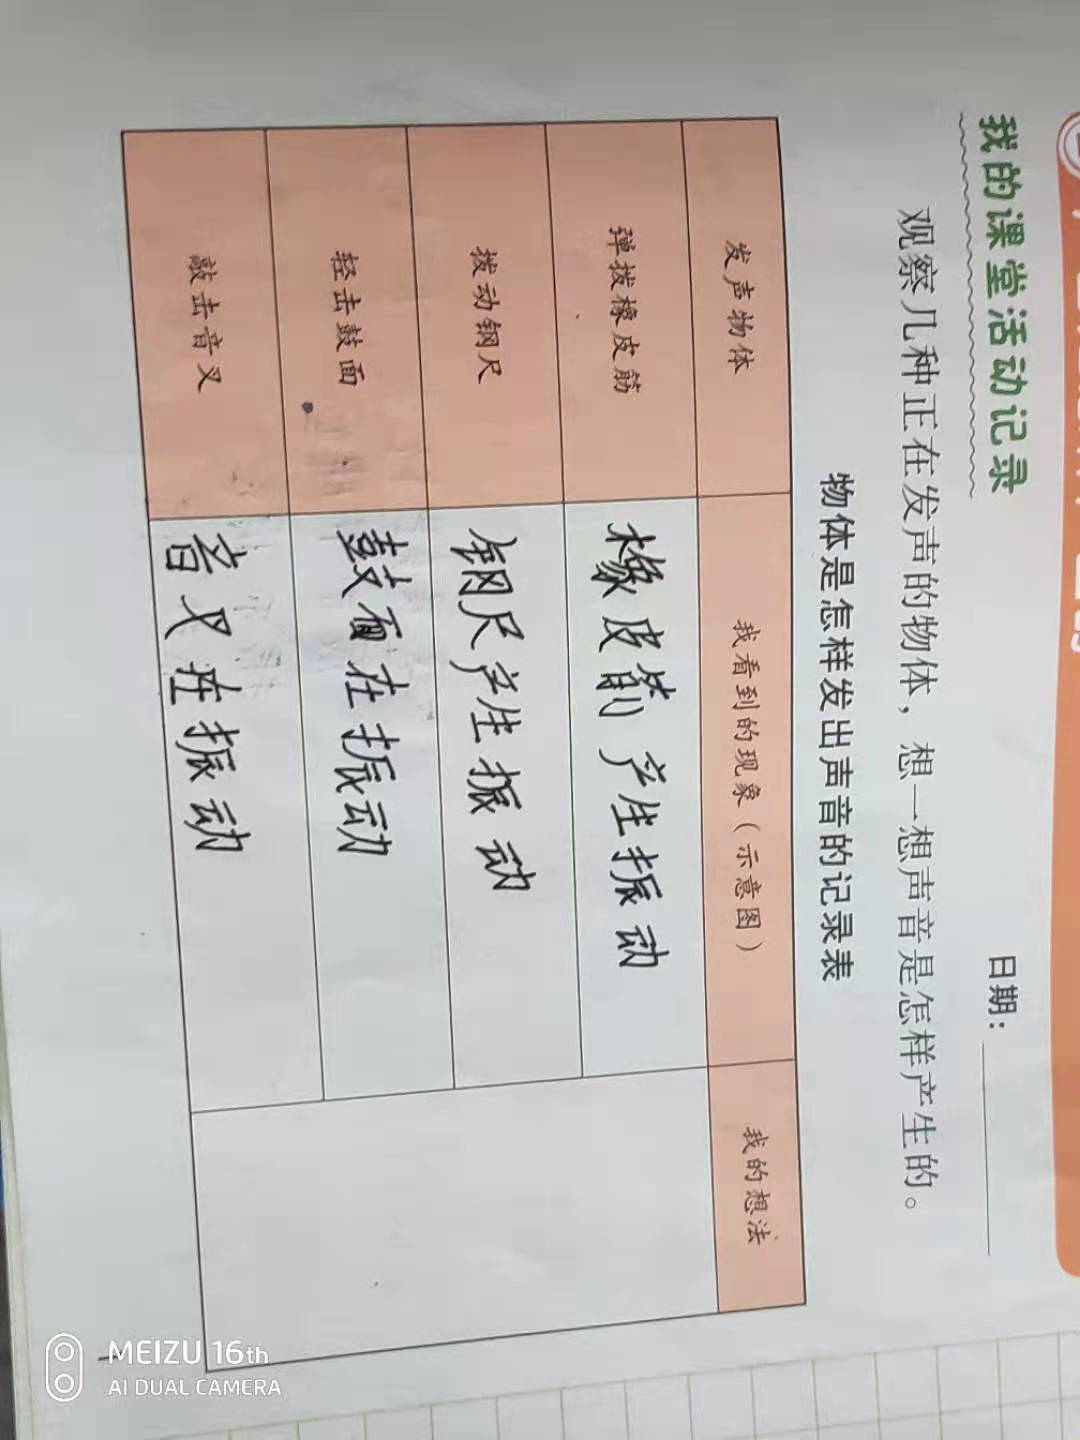 我的课堂活动记录
日期：
观察几种正在发声的物体，想一想声音是怎样产生的。
物体是怎样发出声音的记录表
发声物体 我看到的现象（示意图） 我的想法
弹拨橡皮筋 橡皮筋产生振动
拨动钢尺 钢尺产生振动
轻击鼓面 鼓面在振动
敲击音叉 音叉在振动
MEIZU 16th
AI DUAL CAMERA